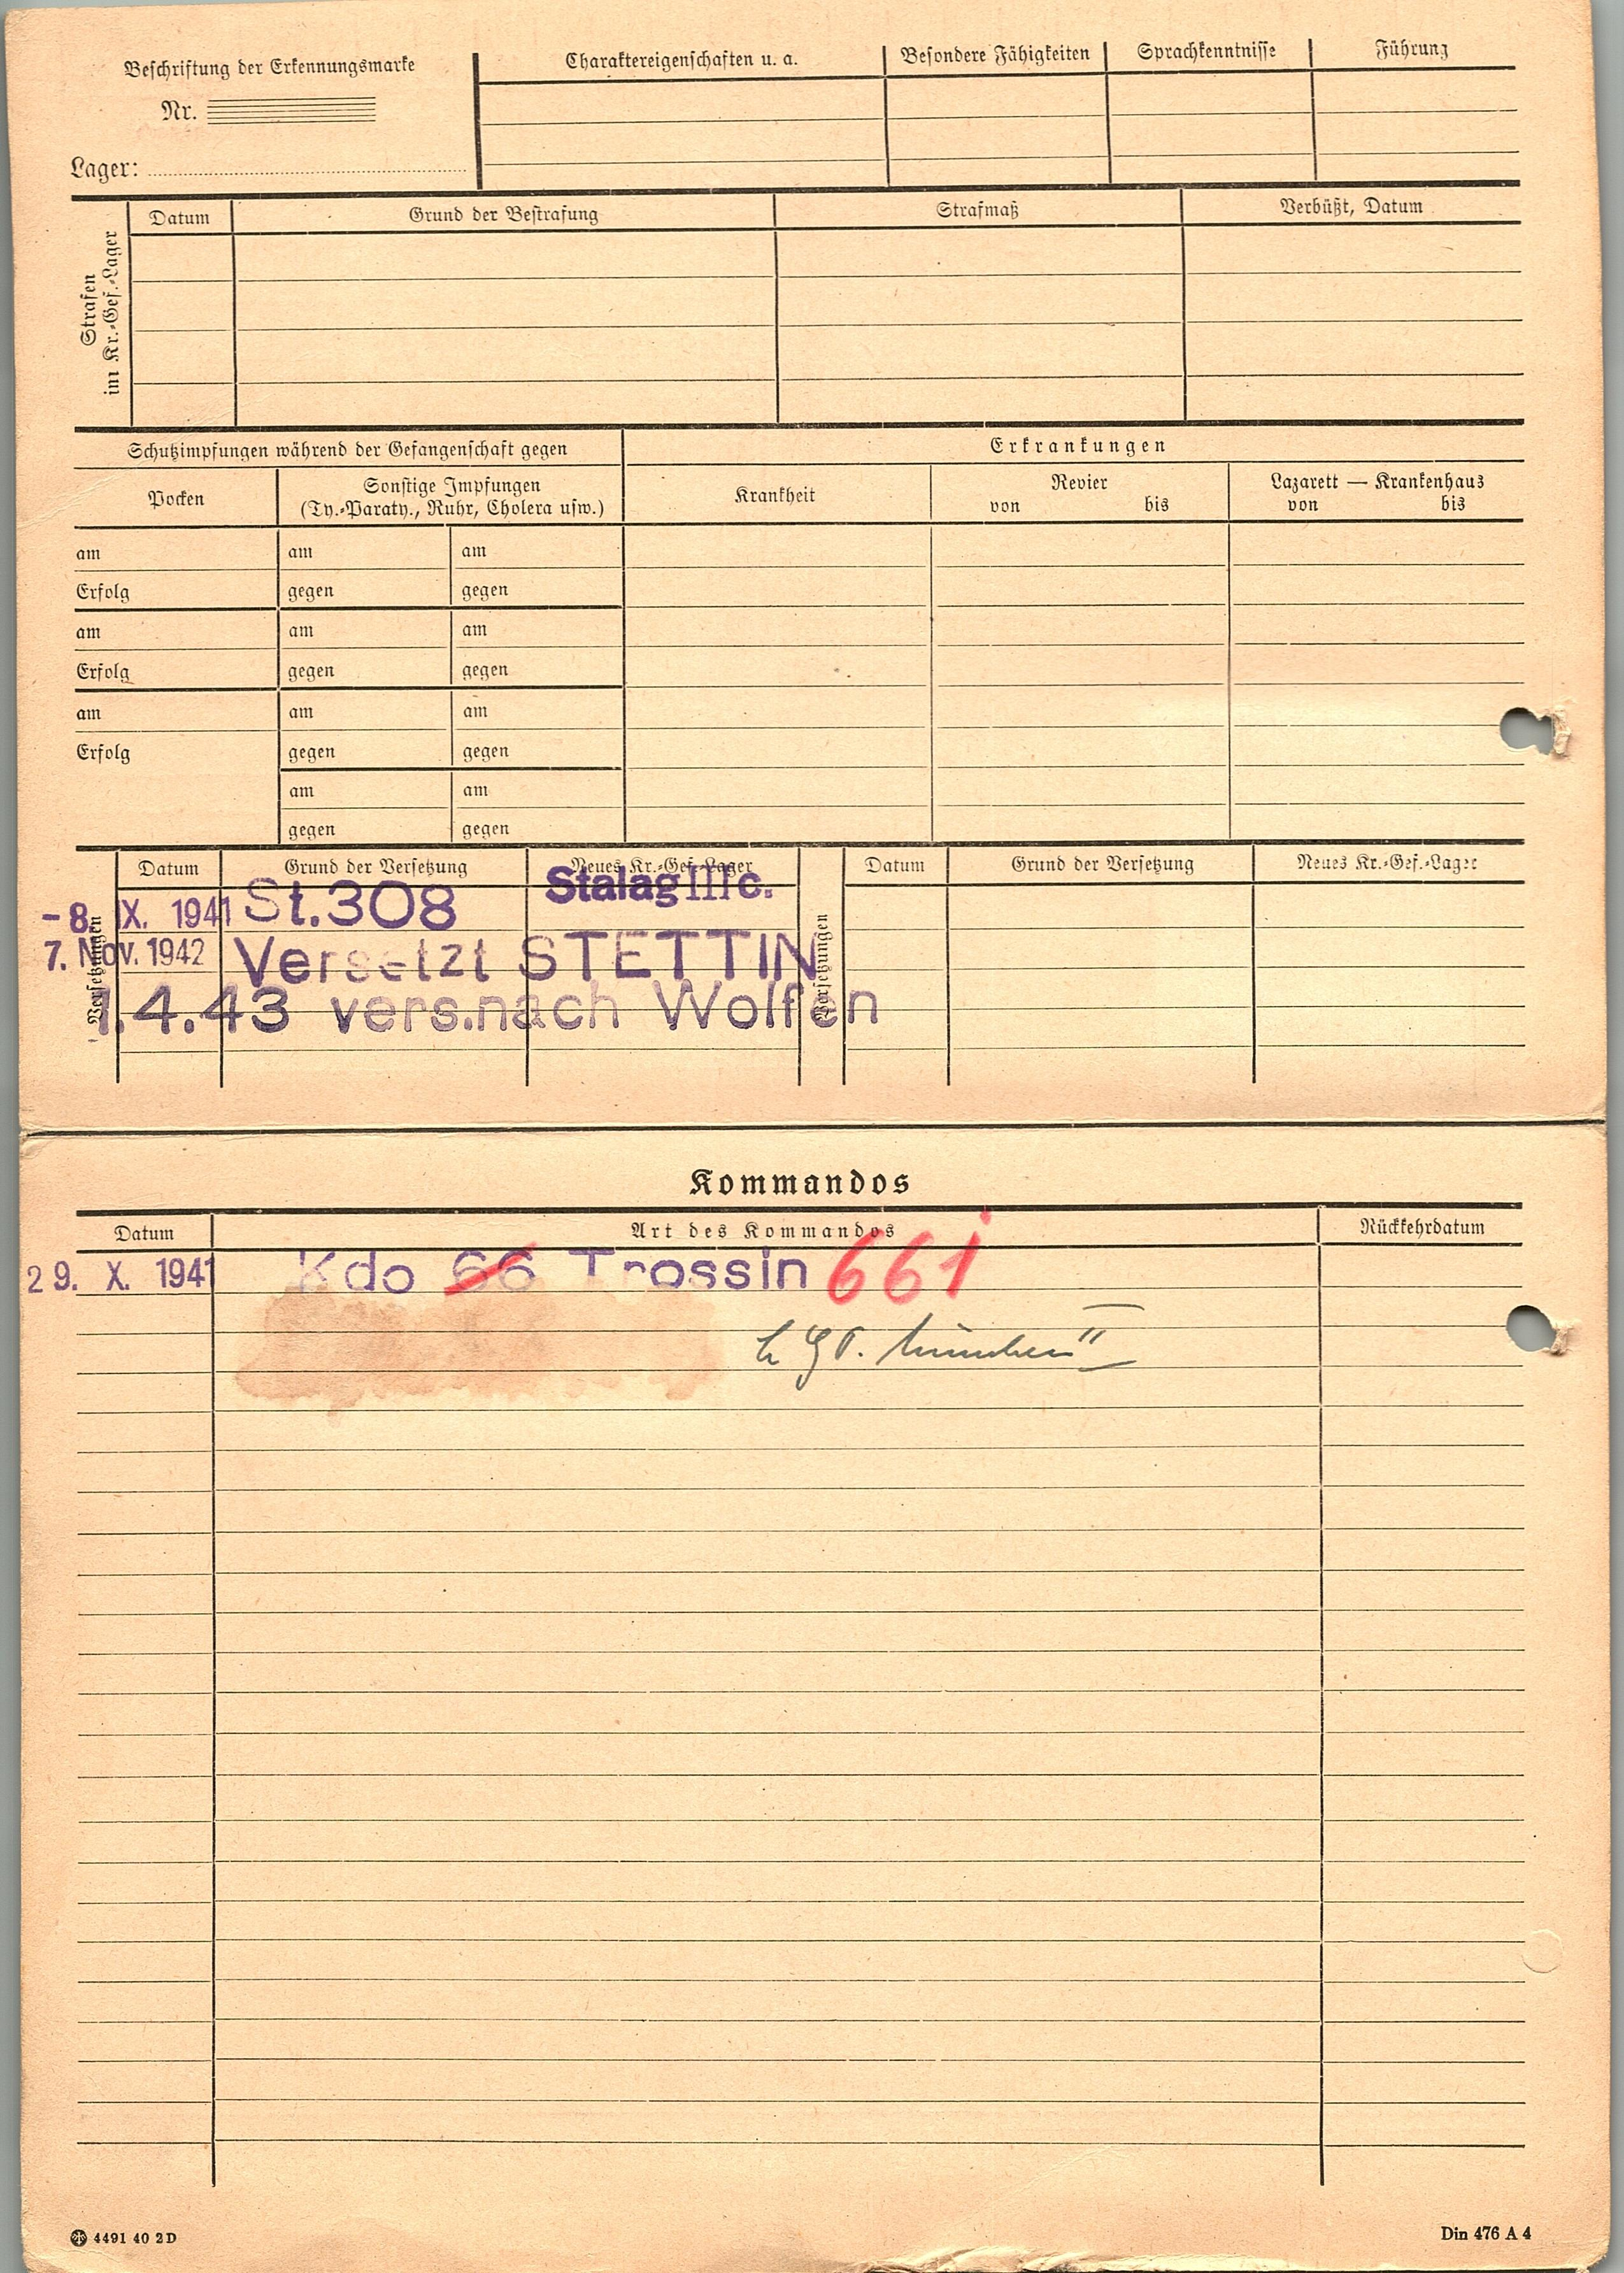 Beschriftung der Erkennungsmarke
Nr.
Lager:
Charaktereigenschaften u. a.
Besondere Fähigkeiten
Sprachkenntnisse
Führung
Strafen
im Kr.-Gef.-Lager
Datum
Grund der Bestrafung
Strafmaß
Verbüßt, Datum
Schutzimpfungen während der Gefangenschaft gegen
Erkrankungen
Pocken
Sonstige Impfungen
(Ty.-Paraty., Ruhr, Cholera usw.)
Krankheit
Revier
von bis
Lazarett — Krankenhaus
von bis
am am am
Erfolg gegen gegen
am am am
Erfolg gegen gegen
am am am
Erfolg gegen gegen
am am
gegen gegen
Versetzungen
Datum Grund der Versetzung Neues Kr.-Gef.-Lager
-8. IX. 1941 St.308 Stalag IIIc.
7. Nov. 1942 Versetzt STETTIN
1.4.43 vers.nach Wolfen
Versetzungen
Datum Grund der Versetzung Neues Kr.-Gef.-Lager
Kommandos
Datum Art des Kommandos Rückkehrdatum
29. X. 1941 Kdo 66 Trossin 661
4491 40 2D
Din 476 A 4